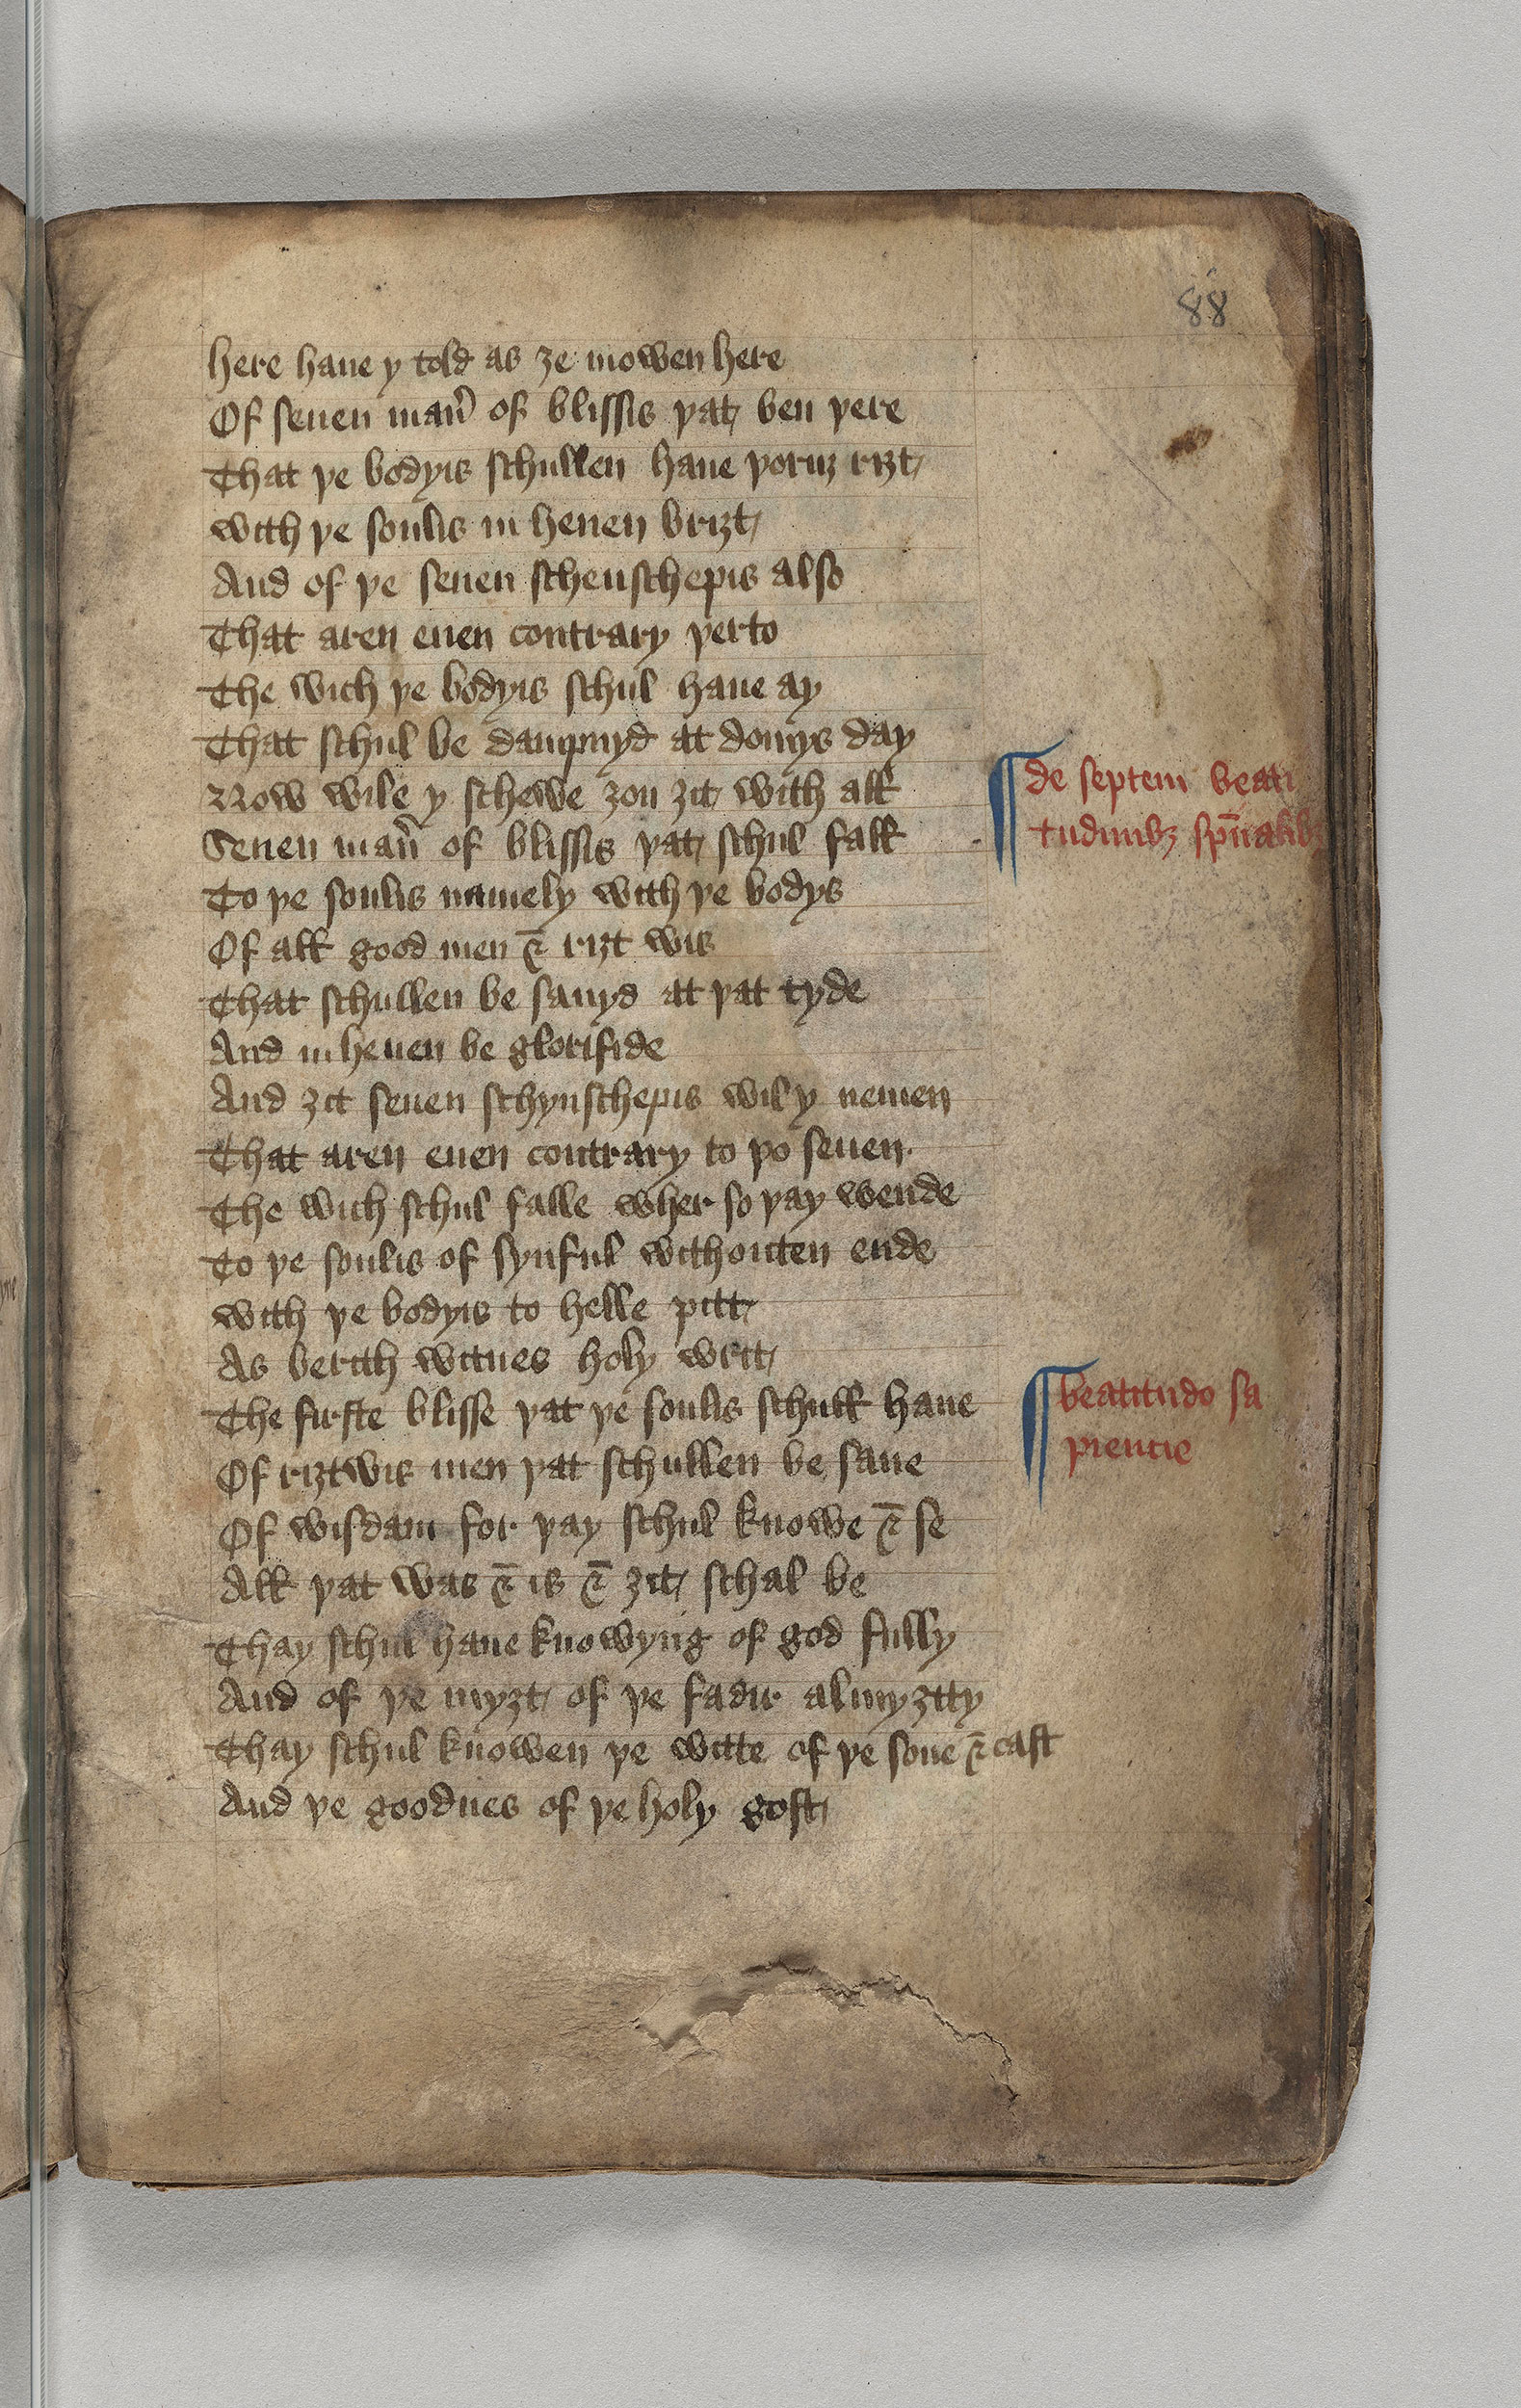 88
here haue y told as ȝe mowen here
Of seuen man̉ of blissis þat ben þere
That þe bodyis schullen haue þoruȝ riȝt
with þe soulis in heuen briȝt
And of þe seuen schenschepis also
That aren euen contrary þerto
The wich þe bodyis schul haue ay
That schul be dampnyd at domys day
Now wile y schewe ȝou ȝit with all
Seuen man̉ of blissis þat schul fall
de septem beati
tudinibꝫ sp̄ualibꝫ
To þe soulis namely with þe bodys
Of all good men ⁊ riȝt wis
That schullen be sauyd at þat tyde
And in heuen be glorifide
And ȝit seuen schynschepis wil y nemen
That aren euen contrary to þo seuen.
The wich schul falle wher so þay wende
To þe soulis of synful withouten ende
with þe bodyis to helle pitt
As berith witnes holy writ
The firste blisse þat þe soulis schull haue
beatitudo sa
piencie
Of riȝtwis men þat schullen be saue
Of wisdam for þay schul knowe ⁊ se
All þat was ⁊ is ⁊ ȝit schal be
Thay schul haue knowyng of god fully
And of þe myȝt of þe fadir almyȝtty
Thay schul knowen þe witte of þe sone ⁊ cast
And þe goodnes of þe holy gost